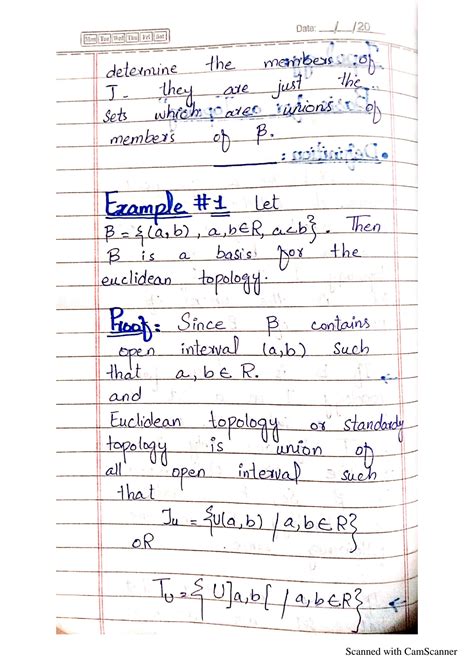 Mon Tue Wed Thu Fri Sat
Date: / /20
determine the members of
T. they are just the
sets which are unions of
members of β.
Example #1 Let
β = {(a,b), a,b∈R, a<b}. Then
β is a basis for the
euclidean topology.
Proof: Since β contains
open interval (a,b) such
that a, b ∈ R.
and
Euclidean topology or standardy
topology is union of
all open interval such
that
Tu = {U(a,b) / a,b∈R}
OR
Tu = { U]a,b[ / a,b∈R}
Scanned with CamScanner